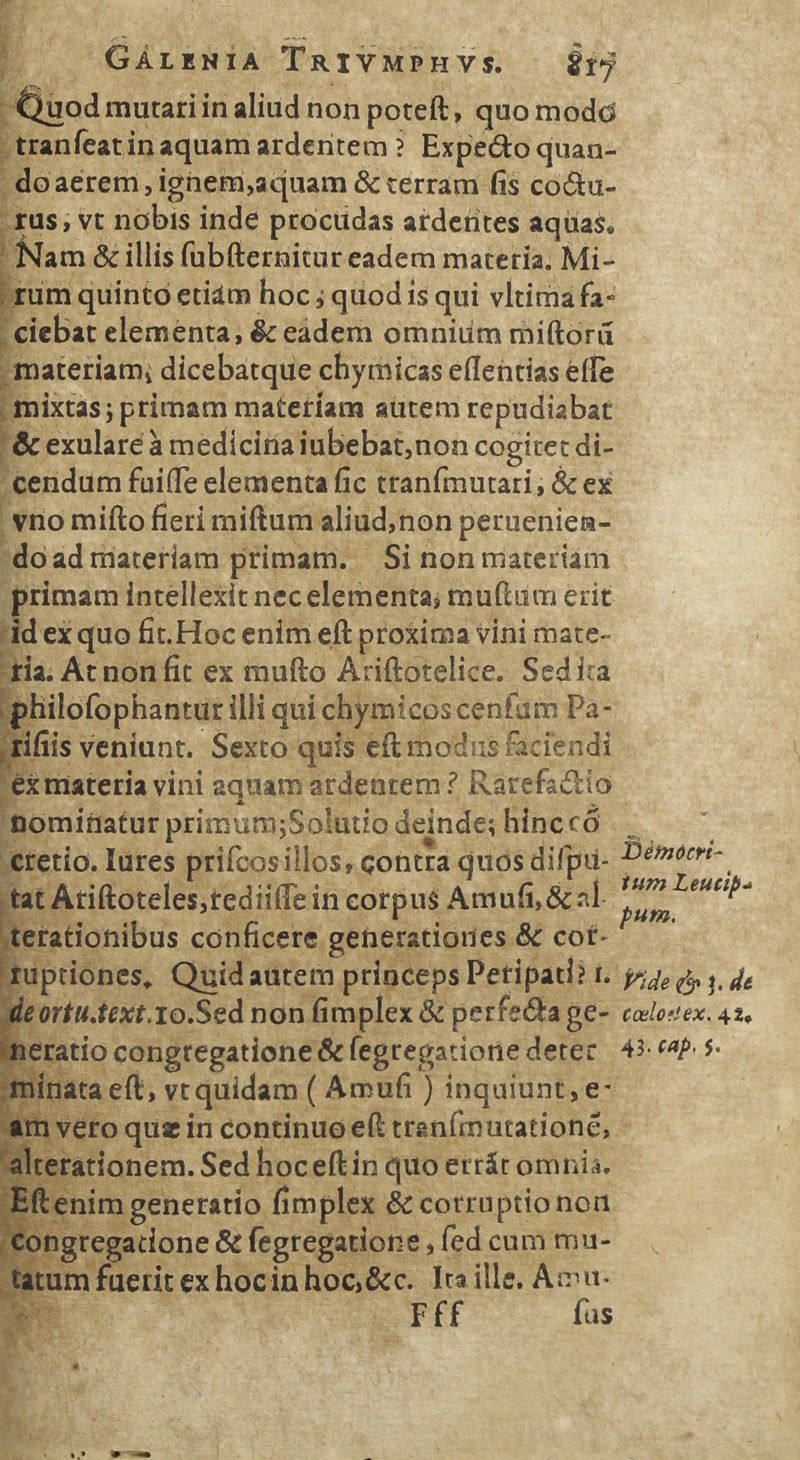 GALENIA TRIVMPHVS. 817
Quod mutari in aliud non poteſt, quo modo
tranſeat in aquam ardentem? Expecto quan-
do aerem, ignem, aquam & terram ſis coctu-
rus, vt nobis inde procudas ardentes aquas.
Nam & illis ſubſternitur eadem materia. Mi-
rum quinto etiam hoc, quod is qui vltima fa-
ciebat elementa, & eadem omnium miſtorū
materiam, dicebatque chymicas eſſentias eſſe
mixtas; primam materiam autem repudiabat
& exulare à medicina iubebat, non cogitet di-
cendum fuiſſe elementa ſic tranſmutari, & ex
vno miſto fieri miſtum aliud, non peruenien-
do ad materiam primam. Si non materiam
primam intellexit nec elementa, muſtum erit
id ex quo fit. Hoc enim eſt proxima vini mate-
ria. At non fit ex muſto Ariſtotelice. Sed ita
philoſophantur illi qui chymicos cenſum Pa-
riſiis veniunt. Sexto quis eſt modus faciendi
ex materia vini aquam ardentem? Rarefactio
nominatur primum; Solutio deinde; hinc cō
cretio. Iures priſcos illos, contra quos diſpu-
tat Ariſtoteles, rediiſſe in corpus Amuſi, & al-
terationibus conficere generationes & cor-
ruptiones. Quid autem princeps Peripati? 1.
de ortu.text.10. Sed non ſimplex & perfecta ge-
neratio congregatione & ſegregatione deter
minata eſt, vt quidam ( Amuſi ) inquiunt, e-
am vero quæ in continuo eſt tranſmutationē,
alterationem. Sed hoc eſt in quo errāt omnia.
Eſt enim generatio ſimplex & corruptio non
congregatione & ſegregatione, ſed cum mu-
tatum fuerit ex hoc in hoc, &c. Ita ille. Amu-
Fff ſus
Democri-
tum Leucip-
pum.
Vide & 3. de
cœlo.tex. 42.
43. cap. 5.